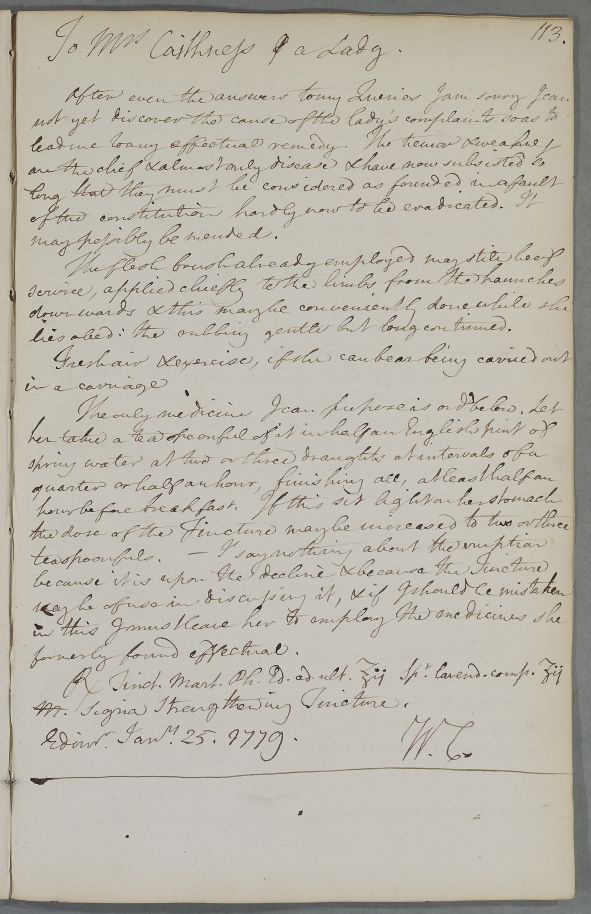 113.
To Mrs Caithness for a Lady.
After even the answers to my Queries I am sorry I can
not yet discover the cause of the lady's complaints so as to
lead me to any effectual remedy. The tremor & weakness
are the chief & almost only disease & have now subsisted so
long that they must be considered as founded in a fault
of the constitution hardly now to be eradicated. It
may possibly be mended.
The flesh brush already employed may still be of
service, applied chiefly to the limbs from the haunches
downwards & this may be conveniently done while she
lies abed: the rubbing gentle but long continued.
Fresh air & exercise, if she can bear being carried out
in a carriage
The only medicine I can propose is ord'd below. Let
her take a teaspoonful of it in half an English pint of
spring water at two or three draughts at intervals of a
quarter or half an hour, finishing all, at least half an
hour before breakfast. If this sit light on her stomach
the dose of the Tincture may be increased to two or three
teaspoonfuls. — I say nothing about the eruption
because it is upon the decline & because the Tincture
may be of use in discussing it, & if I should be mistaken
in this I must leave her to employ the medicines she
formerly found effectual.
℞ Tinct. Mart. Ph. Ed. ad. ult. ℥ij Spt. lavend. comp. ℥ij
M. Signa Strengthening Tincture.
Edinr. Janry. 25. 1779. W. C.